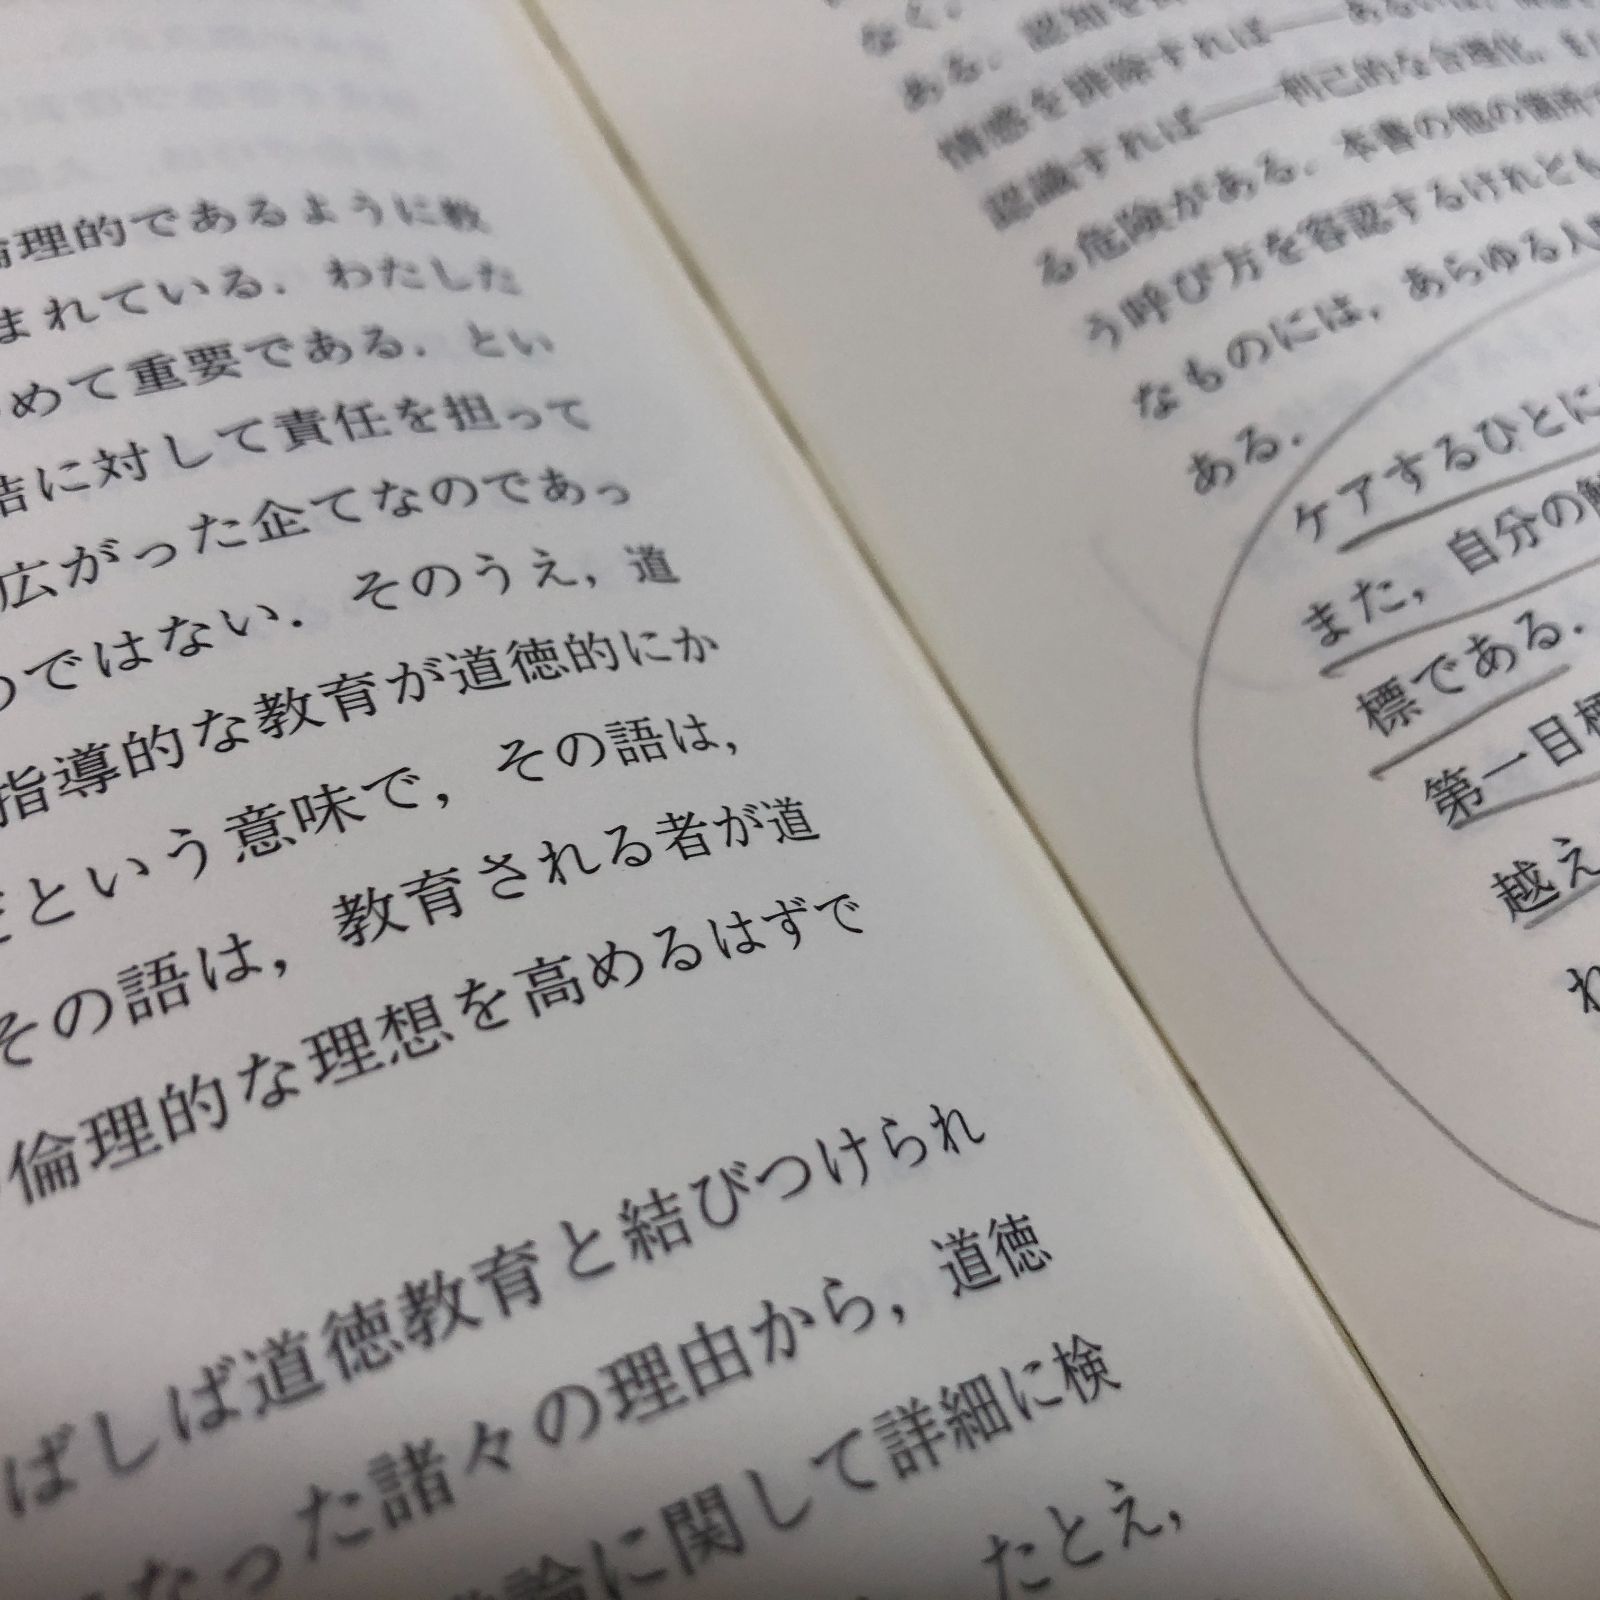 倫理的であるように教
まれている．わたした
めて重要である．とい
結に対して責任を担って
広がった企てなのであっ
のではない．そのうえ，道
指導的な教育が道徳的にか
という意味で，その語は，
その語は，教育される者が道
倫理的な理想を高めるはずで
ばしば道徳教育と結びつけられ
なった諸々の理由から，道徳
論に関して詳細に検
たとえ，
なく，
ある．認知を
情感を排除すれば――あるいは，
認識すれば――利己的な合理化，
る危険がある．本書の他の箇所
う呼び方を容認するけれども
なものには，あらゆる人
ある．
ケアするひとに
また，自分の
標である．
第一目標
越え
わ